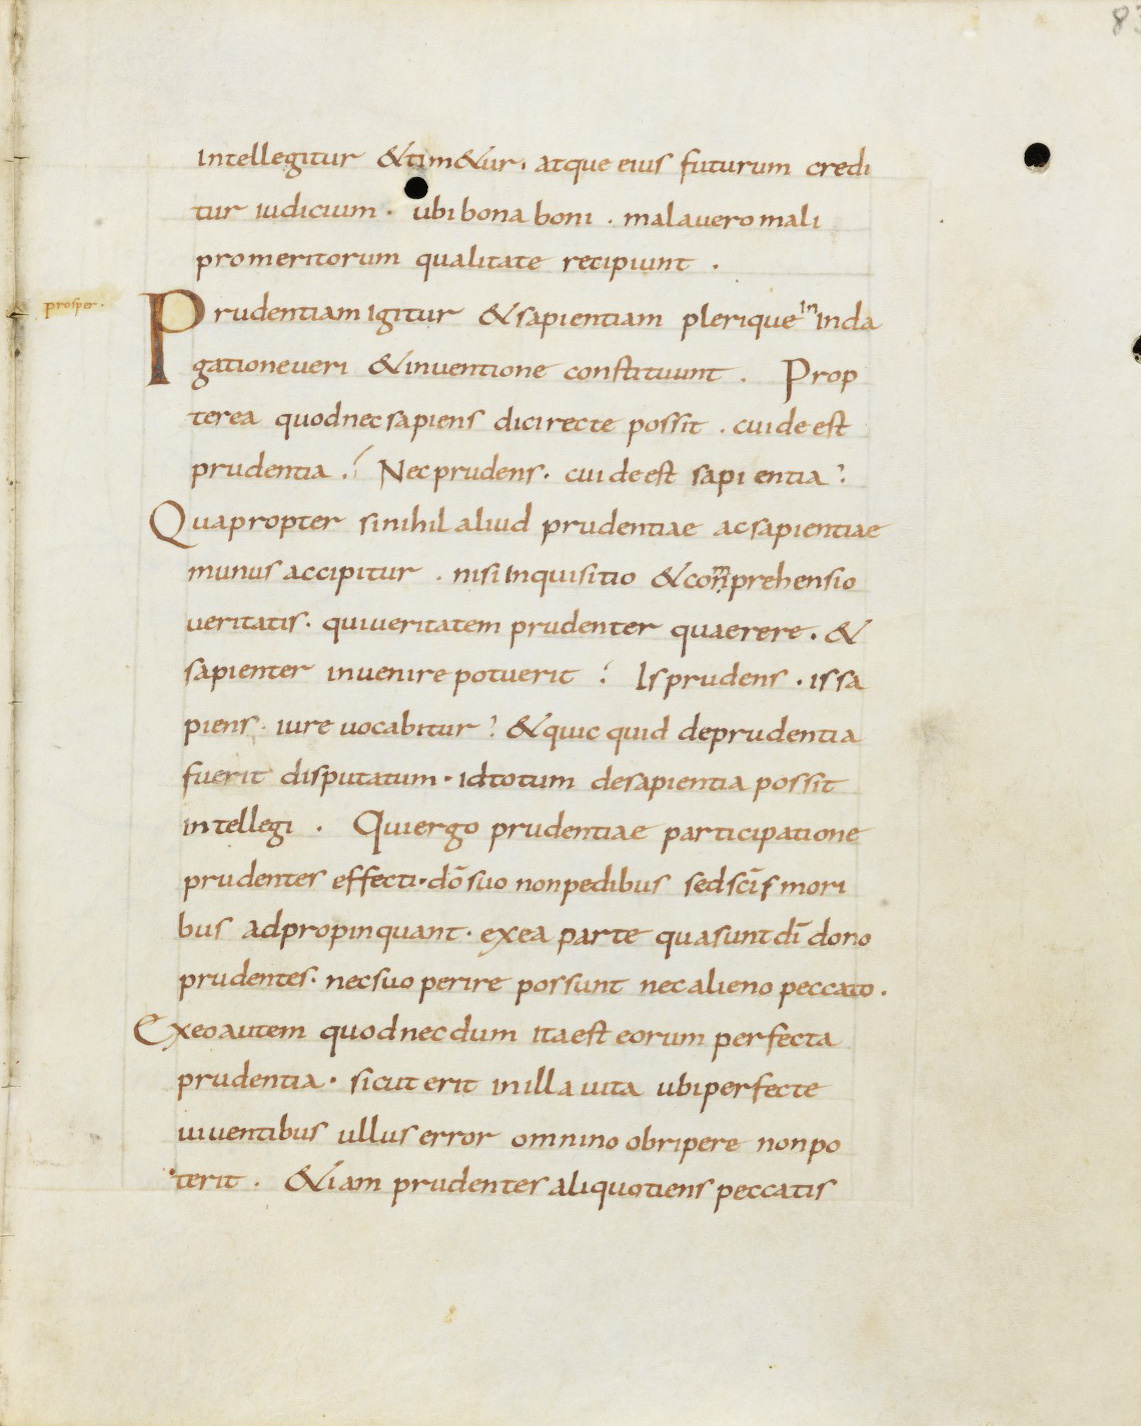 83
intellegitur & tim&ur. atque eius futurum credi
tur iudicium. ubi bona boni. mala uero mali
pro meritorum qualitate recipiunt.
prosper.
Prudentiam igitur & sapientiam plerique in inda
gatione ueri & inuentione constituunt. Prop
terea quod nec sapiens dici recte possit. cui deest
prudentia. Nec prudens. cui deest sapientia?
Quapropter si nihil aliud prudentiae ac sapientiae
munus accipitur. nisi inquisitio & comprehensio
ueritatis. qui ueritatem prudenter quaerere. &
sapienter inuenire potuerit? Is prudens. is sa
piens. iure uocabitur? & quic quid de prudentia
fuerit disputatum. id totum de sapientia possit
intellegi. Qui ergo prudentiae participatione
prudentes effecti. dō suo non pedibus sed scīs mori
bus adpropinquant. ex ea parte qua sunt dī dono
prudentes. nec suo perire possunt nec alieno peccato.
Ex eo autem quod nec dum ita est eorum perfecta
prudentia. sicut erit in illa uita ubi perfecte
uiuentibus ullus error omnino obripere non po
terit. &iam prudentes aliquotiens peccatis